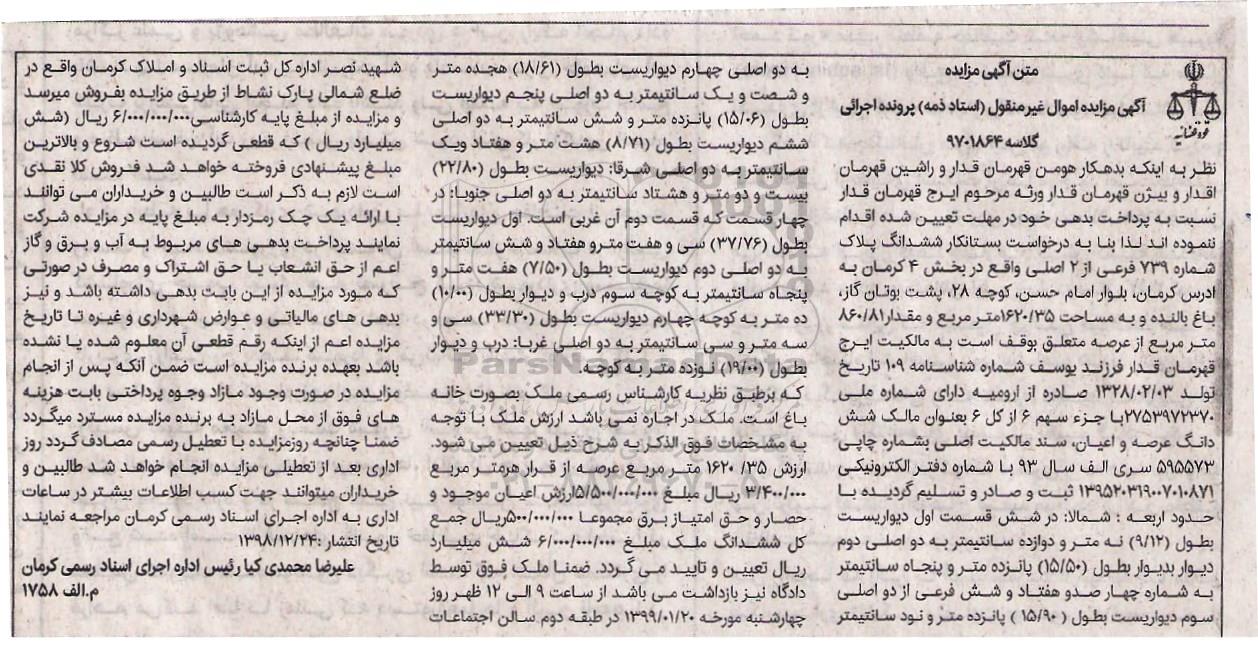 متن آگهی مزایده
آگهی مزایده اموال غیر منقول (اسناد ذمه) پرونده اجرائی
کلاسه ۹۷۰۱۸۶۴
نظر به اینکه بدهکار هومن قهرمان قدار و راشین قهرمان
اقدار و بیژن قهرمان قدار ورثه مرحوم ایرج قهرمان قدار
نسبت به پرداخت بدهی خود در مهلت تعیین شده اقدام
ننموده اند لذا بنا به درخواست بستانکار ششدانگ پلاک
شماره ۷۳۹ فرعی از ۲ اصلی واقع در بخش ۴ کرمان به
ادرس کرمان، بلوار امام حسن، کوچه ۲۸، پشت بوتان گاز،
باغ بالنده و به مساحت ۱۶۲۰/۳۵متر مربع و مقدار ۸۶۰/۸۱
متر مربع از عرصه متعلق بوقف است به مالکیت ایرج
قهرمان قدار فرزند یوسف شماره شناسنامه ۱۰۹ تاریخ
تولد ۱۳۲۸/۰۲/۰۳ صادره از ارومیه دارای شماره ملی
۲۷۵۳۹۷۲۳۷۰با جزء سهم ۶ از کل ۶ بعنوان مالک شش
دانگ عرصه و اعیان، سند مالکیت اصلی بشماره چاپی
۵۹۵۵۷۳ سری الف سال ۹۳ با شماره دفتر الکترونیکی
۱۳۹۵۲۰۳۱۹۰۰۷۰۱۰۸۷۱ ثبت و صادر و تسلیم گردیده با
حدود اربعه : شمالا: در شش قسمت اول دیواریست
بطول (۹/۱۲) نه متر و دوازده سانتیمتر به دو اصلی دوم
دیوار بدیوار بطول (۱۵/۵۰) پانزده متر و پنجاه سانتیمتر
به شماره چهار صدو هفتاد و شش فرعی از دو اصلی
سوم دیواریست بطول ( ۱۵/۹۰) پانزده متر و نود سانتیمتر
به دو اصلی چهارم دیواریست بطول (۱۸/۶۱) هجده متر
و شصت و یک سانتیمتر به دو اصلی پنجم دیواریست
بطول (۱۵/۰۶) پانزده متر و شش سانتیمتر به دو اصلی
ششم دیواریست بطول (۸/۷۱) هشت متر و هفتاد ویک
سانتیمتر به دو اصلی شرقا: دیواریست بطول (۲۲/۸۰)
بیست و دو متر و هشتاد سانتیمتر به دو اصلی جنوبا: در
چهار قسمت که قسمت دوم آن غربی است. اول دیواریست
بطول (۳۷/۷۶) سی و هفت مترو هفتاد و شش سانتیمتر
به دو اصلی دوم دیواریست بطول (۷/۵۰) هفت متر و
پنجاه سانتیمتر به کوچه سوم درب و دیوار بطول (۱۰/۰۰)
ده متر به کوچه چهارم دیواریست بطول (۳۳/۳۰) سی و
سه متر و سی سانتیمتر به دو اصلی غربا: درب و دیوار
بطول (۱۹/۰۰) نوزده متر به کوچه.
که برطبق نظریه کارشناس رسمی ملک بصورت خانه
باغ است. ملک در اجاره نمی باشد ارزش ملک با توجه
به مشخصات فوق الذکر به شرح ذیل تعیین می شود.
ارزش ۳۵/ ۱۶۲۰ متر مربع عرصه از قرار هرمتر مربع
۳/۴۰۰/۰۰۰ ریال مبلغ ۵/۵۰۰/۰۰۰/۰۰۰ارزش اعیان موجود و
حصار و حق امتیاز برق مجموعا ۵۰۰/۰۰۰/۰۰۰ریال جمع
کل ششدانگ ملک مبلغ ۶/۰۰۰/۰۰۰/۰۰۰ شش میلیارد
ریال تعیین و تایید می گردد. ضمنا ملک فوق توسط
دادگاه نیز بازداشت می باشد از ساعت ۹ الی ۱۲ ظهر روز
چهارشنبه مورخه ۱۳۹۹/۰۱/۲۰ در طبقه دوم سالن اجتماعات
شهید نصر اداره کل ثبت اسناد و املاک کرمان واقع در
ضلع شمالی پارک نشاط از طریق مزایده بفروش میرسد
و مزایده از مبلغ پایه کارشناسی۶/۰۰۰/۰۰۰/۰۰۰ ریال (شش
میلیارد ریال ) که قطعی گردیده است شروع و بالاترین
مبلغ پیشنهادی فروخته خواهد شد فروش کلا نقدی
است لازم به ذکر است طالبین و خریداران می توانند
با ارائه یک چک رمزدار به مبلغ پایه در مزایده شرکت
نمایند پرداخت بدهی های مربوط به آب و برق و گاز
اعم از حق انشعاب یا حق اشتراک و مصرف در صورتی
که مورد مزایده از این بابت بدهی داشته باشد و نیز
بدهی های مالیاتی و عوارض شهرداری و غیره تا تاریخ
مزایده اعم از اینکه رقم قطعی آن معلوم شده یا نشده
باشد بعهده برنده مزایده است ضمن آنکه پس از انجام
مزایده در صورت وجود مازاد وجوه پرداختی بابت هزینه
های فوق از محل مازاد به برنده مزایده مسترد میگردد
ضمنا چنانچه روزمزایده با تعطیل رسمی مصادف گردد روز
اداری بعد از تعطیلی مزایده انجام خواهد شد طالبین و
خریداران میتوانند جهت کسب اطلاعات بیشتر در ساعات
اداری به اداره اجرای اسناد رسمی کرمان مراجعه نمایند
تاریخ انتشار :۱۳۹۸/۱۲/۲۴
علیرضا محمدی کیا رئیس اداره اجرای اسناد رسمی کرمان
م.الف ۱۷۵۸
ParsNamadData